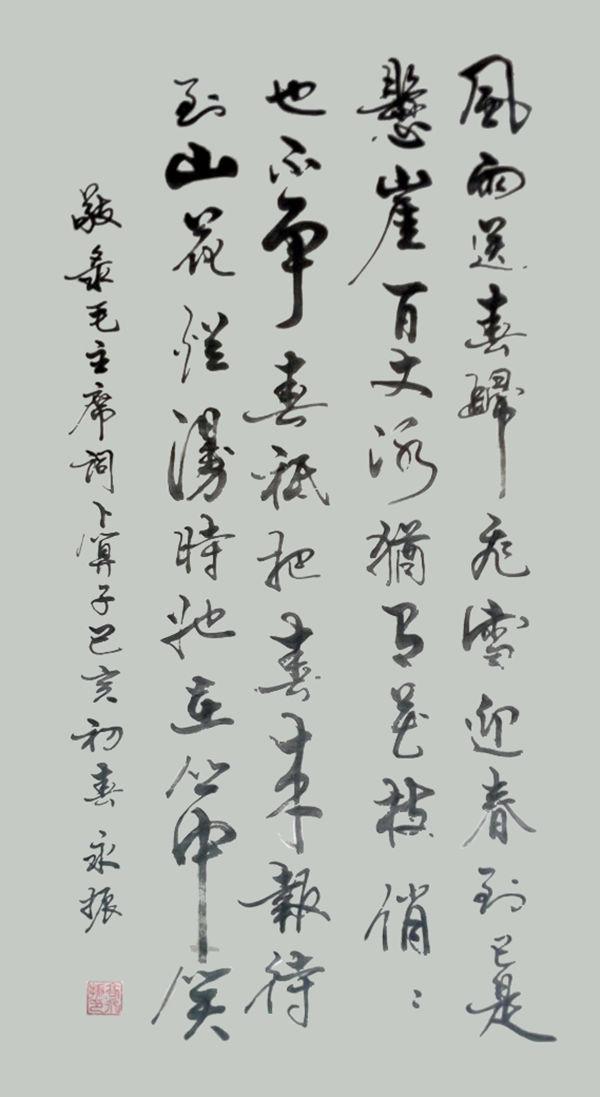 風雨送春歸飛雪迎春到已是
懸崖百丈冰猶有花枝俏〻
也不争春祇把春來報待
到山花烂漫時她在丛中笑
敬录毛主席詞卜算子己亥初春永振